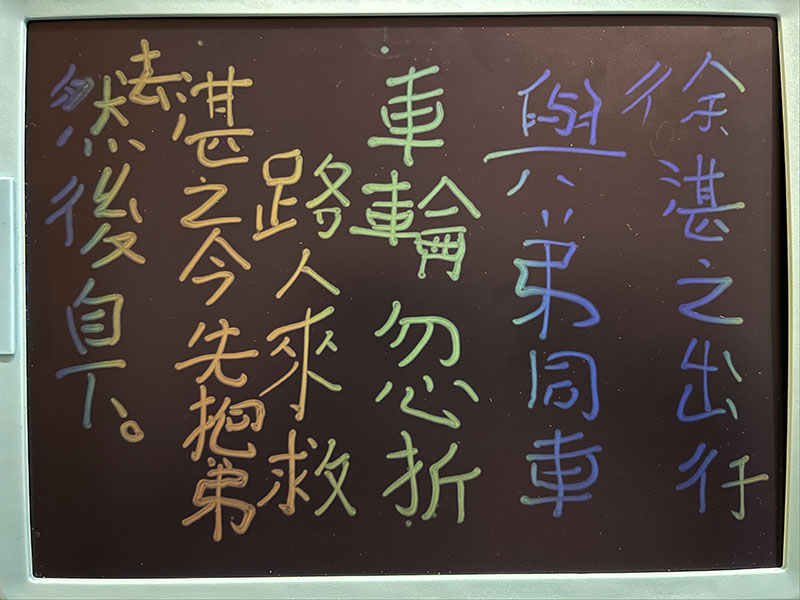 徐湛之出行
與弟同車
車輪忽折
路人來救
湛之令先把弟
去然後自下。